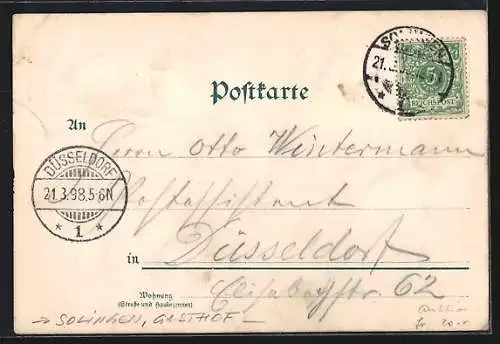 SOLINGEN
21.3.98
1
5
REICHSPOST
Postkarte
An
Herrn Otto Wintermann
DÜSSELDORF
21.3.98.5-6N
* 1 *
Postassistent
in Düsseldorf
Wohnung
(Straße und Hausnummer)
62
→ SOLINGEN, GASTHOF -